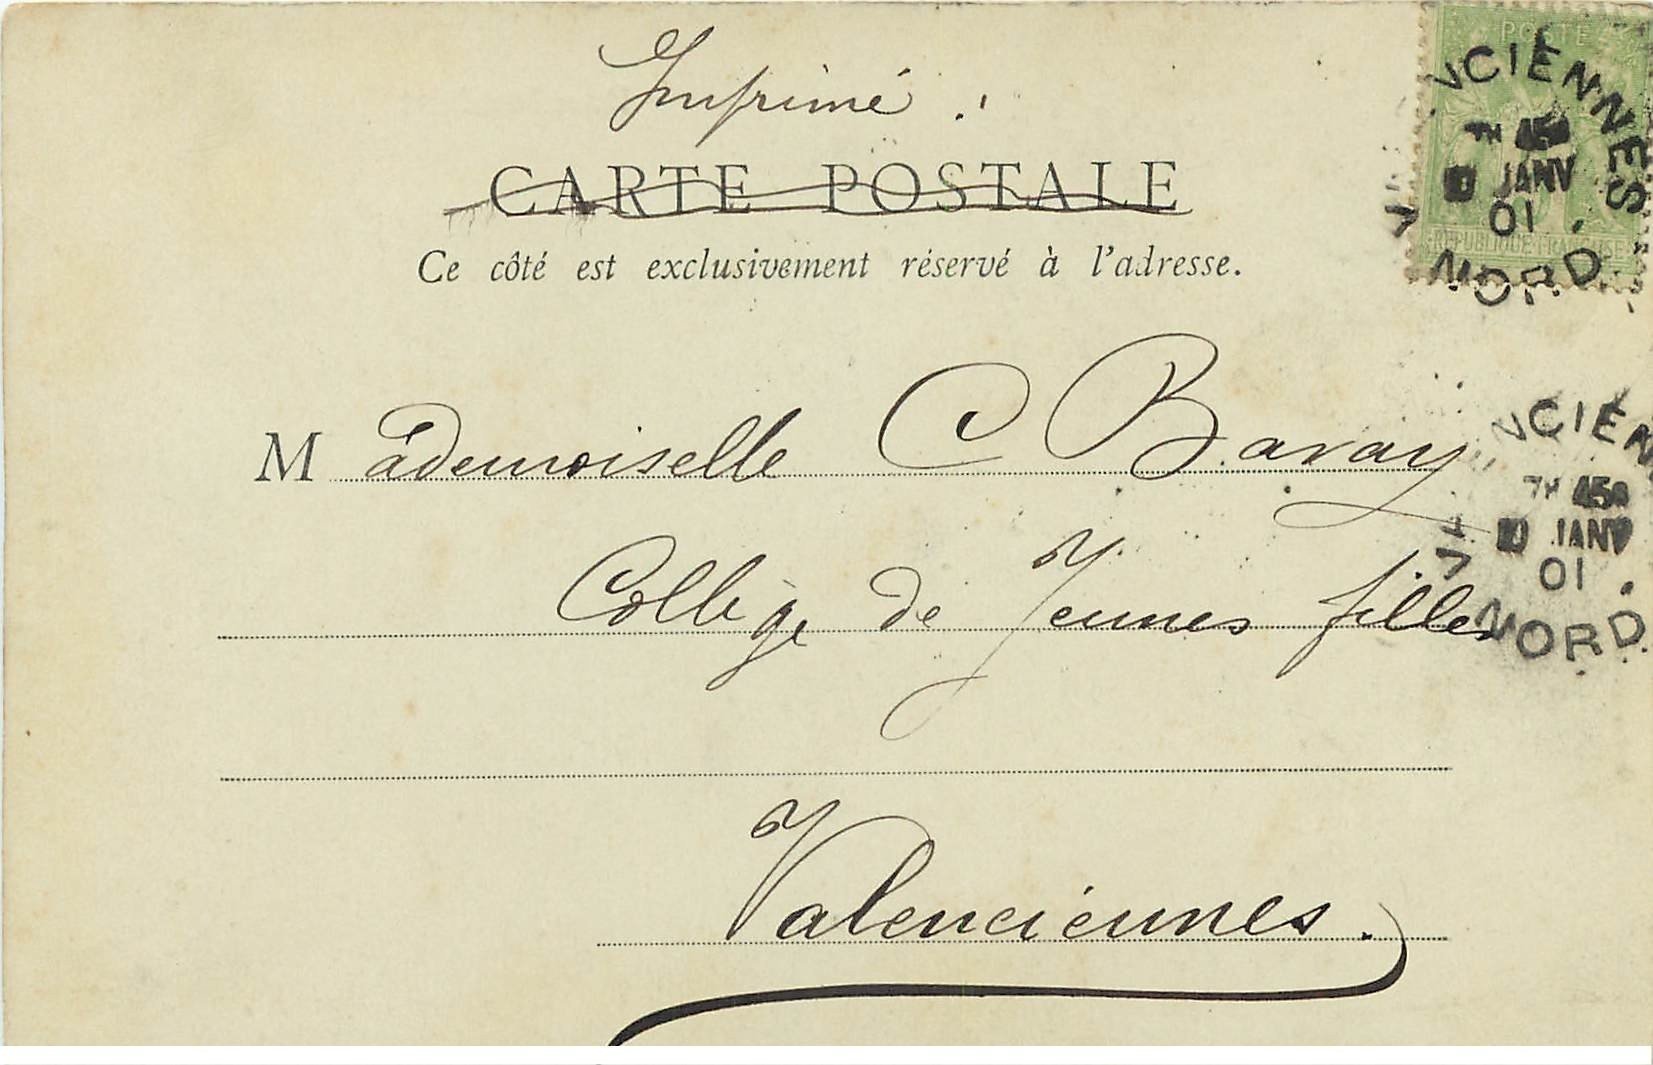 Imprimé.
POSTE
CARTE POSTALE
Ce côté est exclusivement réservé à l'adresse.
REPUBLIQUE FRANÇAISE
NCIENNES
7H 45
JANV
01
NORD
Mademoiselle C Bavay
Collège de Jeunes filles
Valenciennes.
NCIEN
7H 45
10 JANV
01
NORD